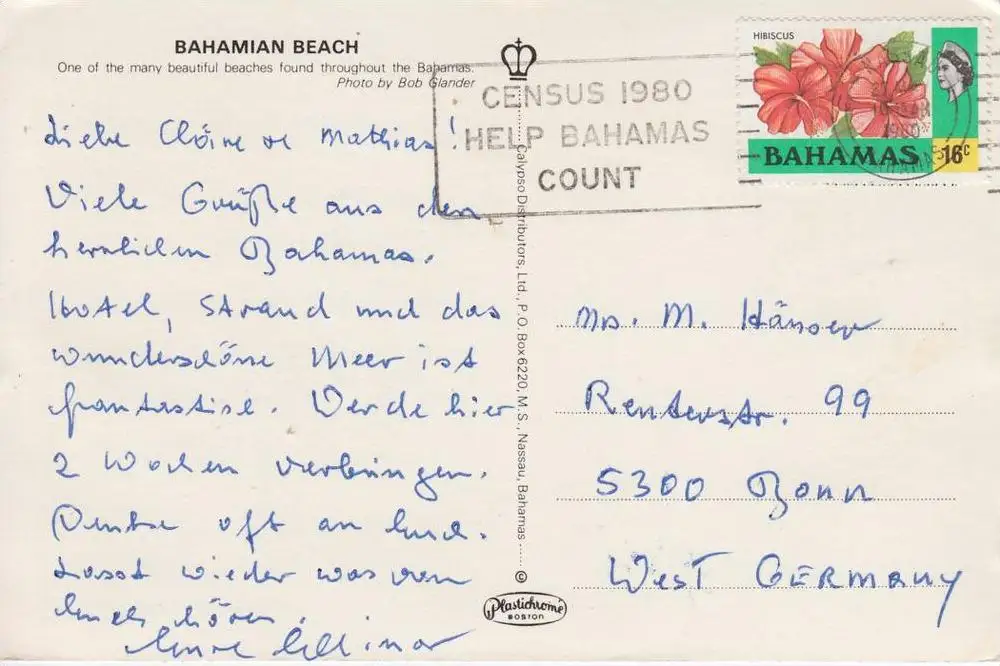 BAHAMIAN BEACH
One of the many beautiful beaches found throughout the Bahamas.
Photo by Bob Glander
Liebe Cläire u Mathias!
Viele Grüße aus den
herrlichen Bahamas.
Hotel, Strand und das
wunderschöne Meer ist
fantastisch. Werde hier
2 Wochen verbringen.
Denke oft an Euch.
Lasst wieder was von
Euch hören.
Eure
CENSUS 1980
HELP BAHAMAS
COUNT
HIBISCUS
BAHAMAS 16c
1980
BAHAMAS
Calypso Distributors, Ltd., P.O. Box 6220, M.S., Nassau, Bahamas
©
Plastichrome
BOSTON
Mrs. M. Hänsen
Rentenstr. 99
5300 Bonn
West GERMANY